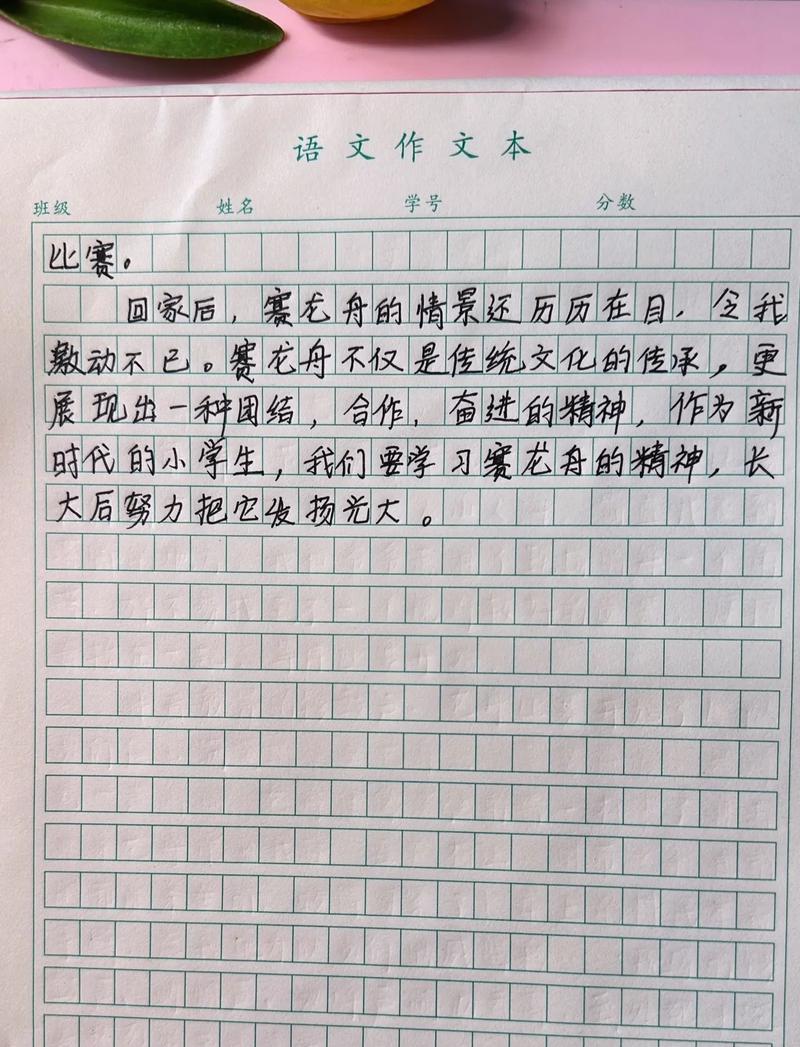 语文作文本
班级 姓名 学号 分数
比赛。
回家后，赛龙舟的情景还历历在目，令我
激动不已。赛龙舟不仅是传统文化的传承，更
展现出一种团结，合作，奋进的精神，作为新
时代的小学生，我们要学习赛龙舟的精神，长
大后努力把它发扬光大。